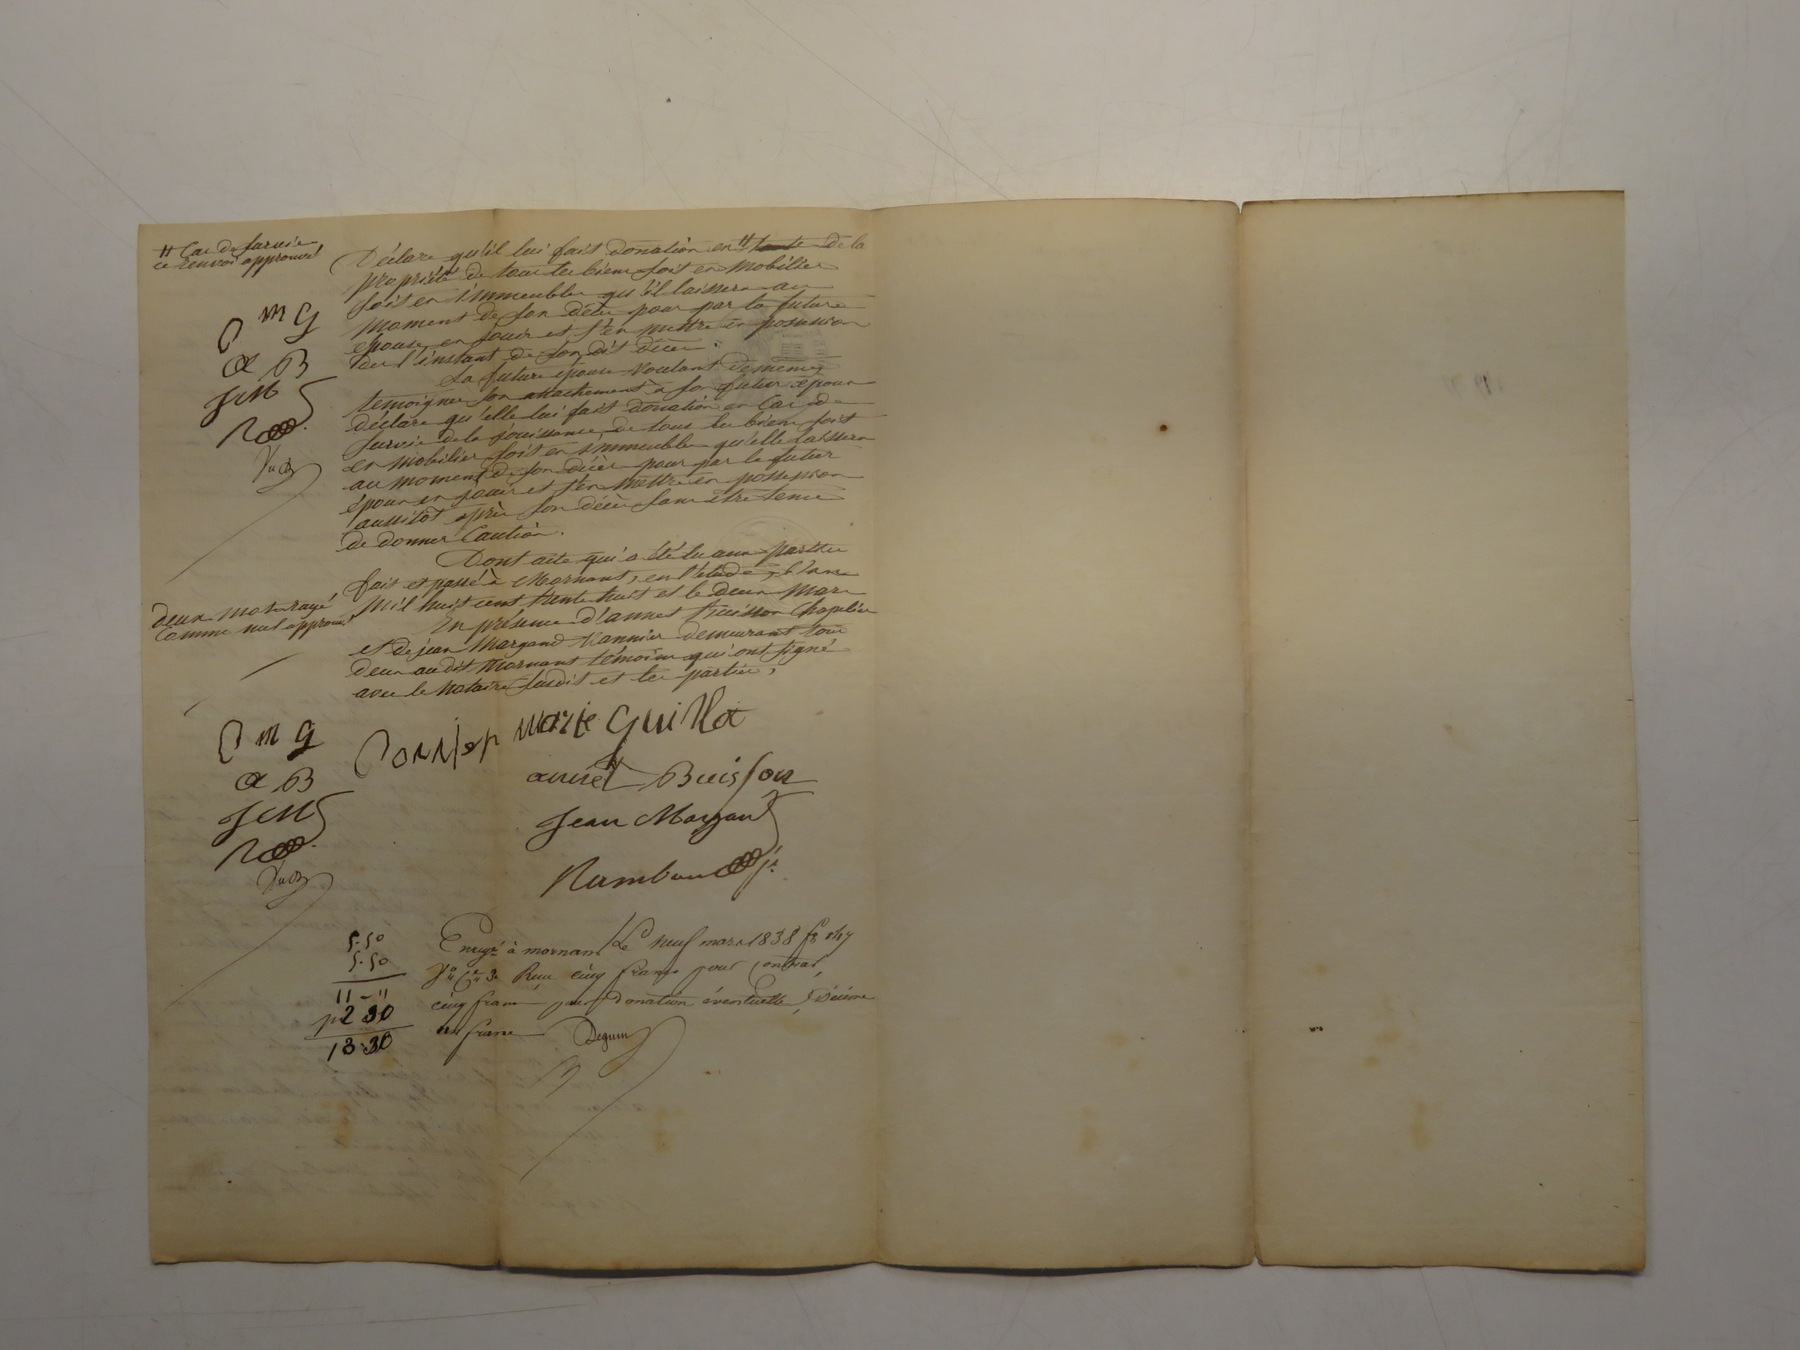 # Cas de Survie
ce renvoi approuvé
Déclare qu'il lui fait donation en # toute de la
propriété de tous les biens soit en mobilier
soit en immeubles qu'il laissera au
moment de son décès pour par la future
épouse en jouir et s'en mettre en possession
dès l'instant de son dit décès.
La future épouse voulant de même
témoigner son attachement à son futur époux
déclare qu'elle lui fait donation en Cas de
Survie de la jouissance de tous les biens soit
en mobilier soit en immeubles qu'elle laissera
au moment de son décès pour par le futur
époux en jouir et s'en mettre en possession
aussitôt après son décès sans être tenu
de donner Caution.
Dont acte qui a été lu aux parties
fait et passé à Mornant, en l'étude, l'an
Mil huit cent trente huit et le deux Mars
En présence d'annet Buisson Chapelier
et de jean Margand Vannier demeurant tous
deux au dit Mornant témoins qui ont signé
avec le Notaire susdit et les parties,
m g
a B
J M
deux mots rayés
Comme nuls approuvés
m g
a B
J M
marie Guillot
annet Buisson
Jean Margand
Rambaud
5-50
5-50
11-"
p 2 30
13-30
Enregé à mornant Le neuf mars 1838 fo
Reçu cinq francs pour contrat,
cinq francs pour donation éventuelle, & décime
un franc Deguin